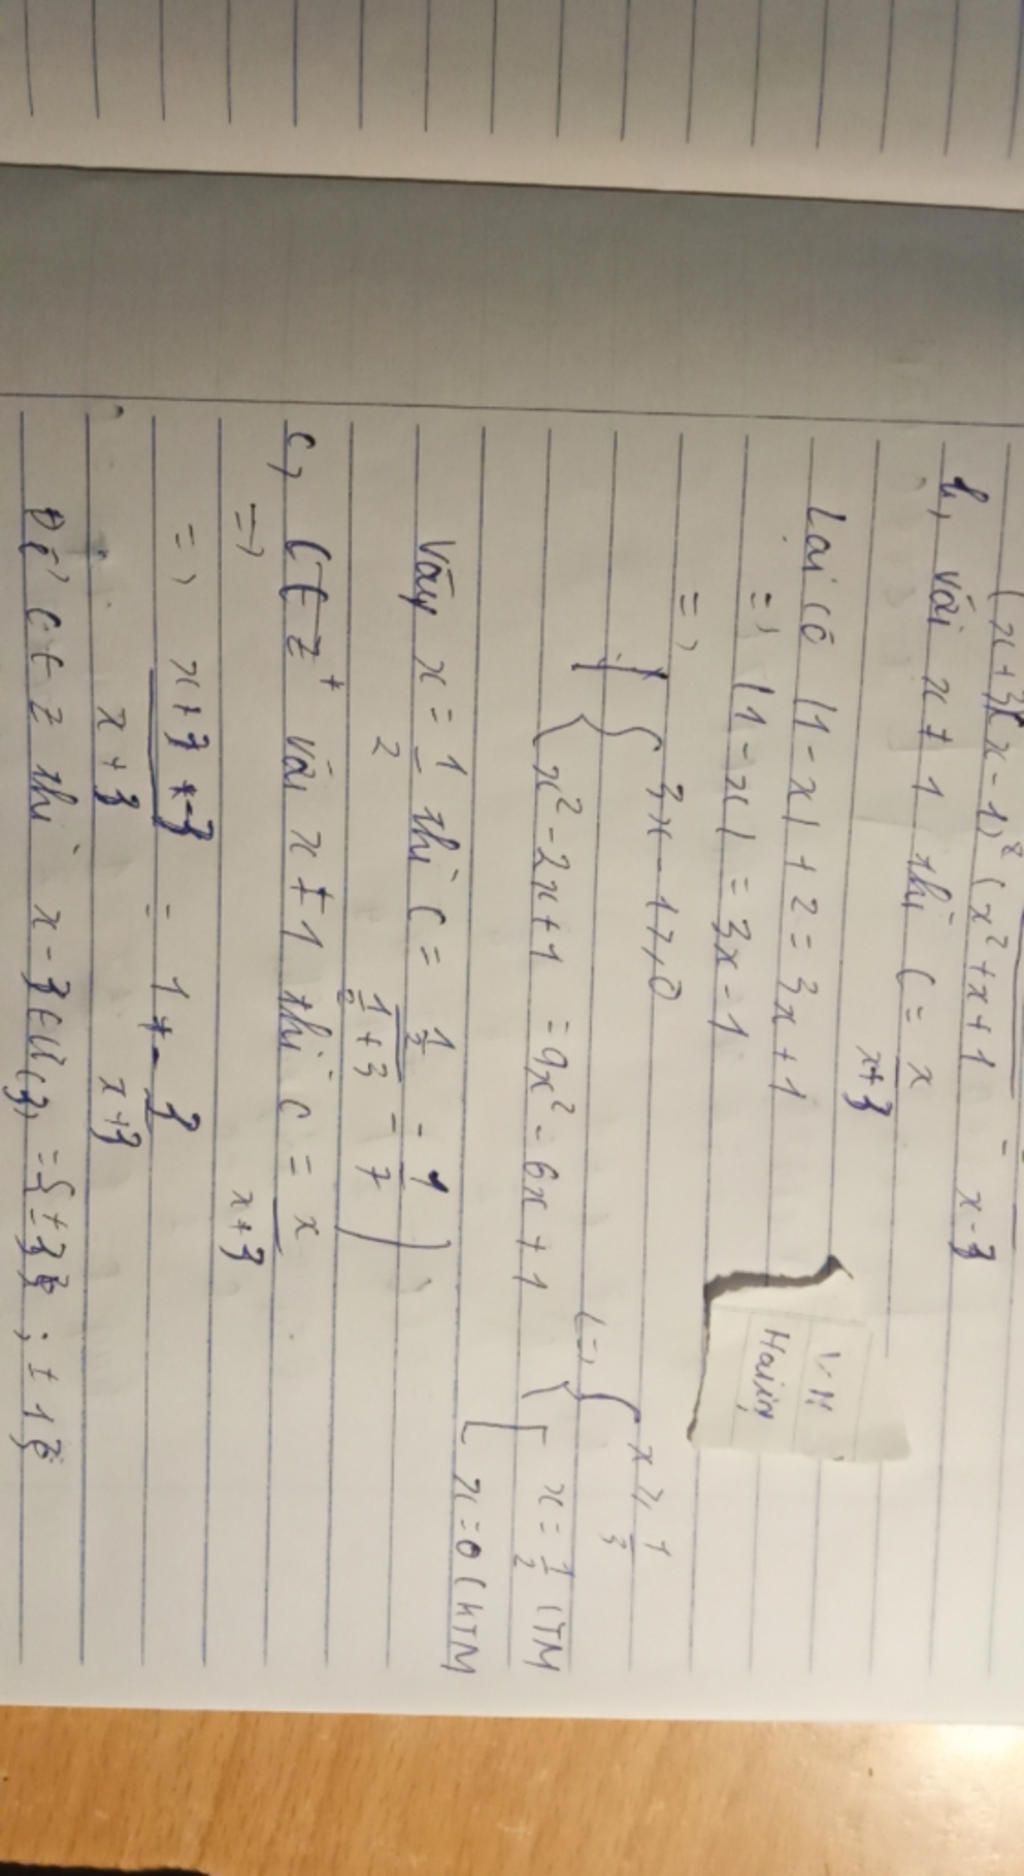 (x+3)(x-1)² (x²+x+1 - x-3
b, với x ≠ 1 thì C = x
x+3
Lại có |1-x| + 2 = 3x+1
=> |1-x| = 3x-1
=> { 3x-1 ≥ 0 <=> { x ≥ 1/3
x²-2x+1 = 9x²-6x+1 [ x = 1/2 (TM
x = 0 (KTM
Vậy x = 1/2 thì C = 1/2 / 1/2 + 3 = 1/7
c, C ∈ Z⁺ với x ≠ 1 thì C = x
=> x+3
=> x+3-3 = 1 - 3
x+3 x+3
Để C ∈ Z thì x-3 ∈ Ư(3) = {±3; ±1}